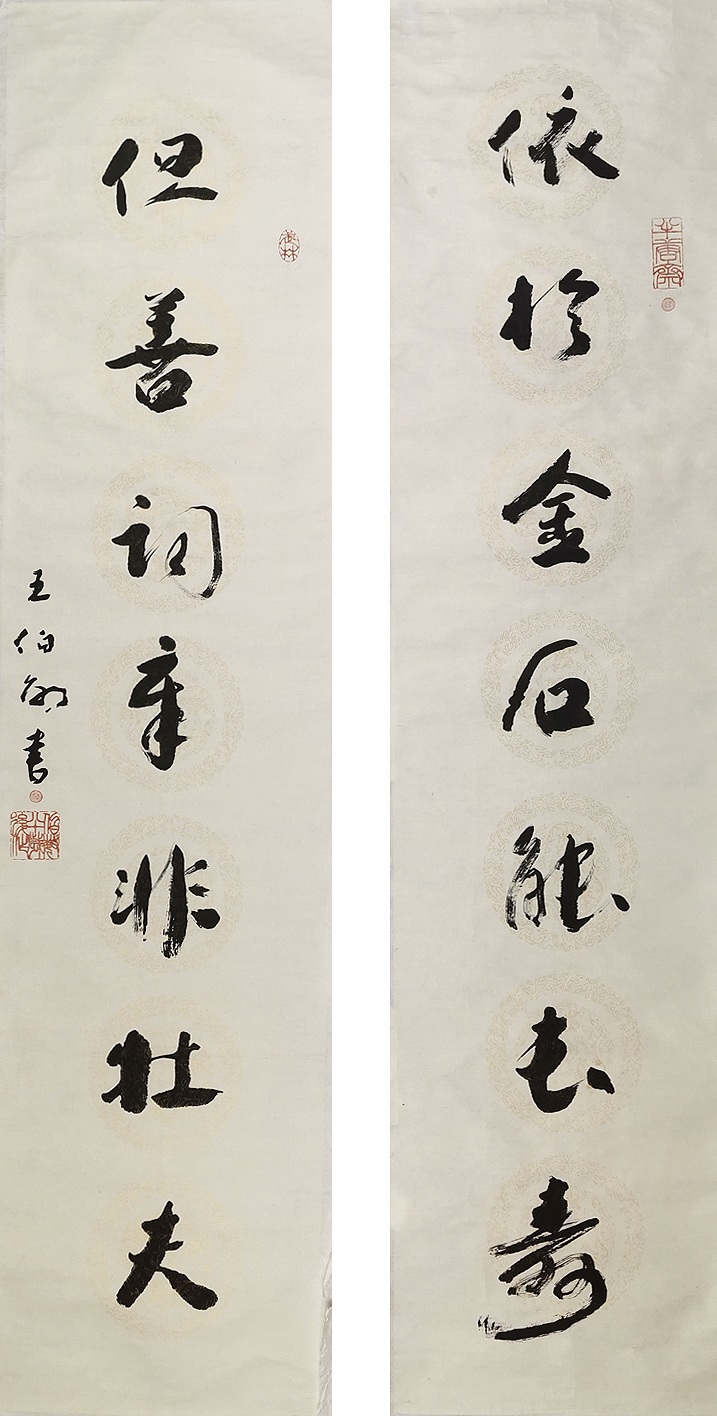 依於金石能長壽
但善詞章非壯夫
王伯敏書
半唐齋